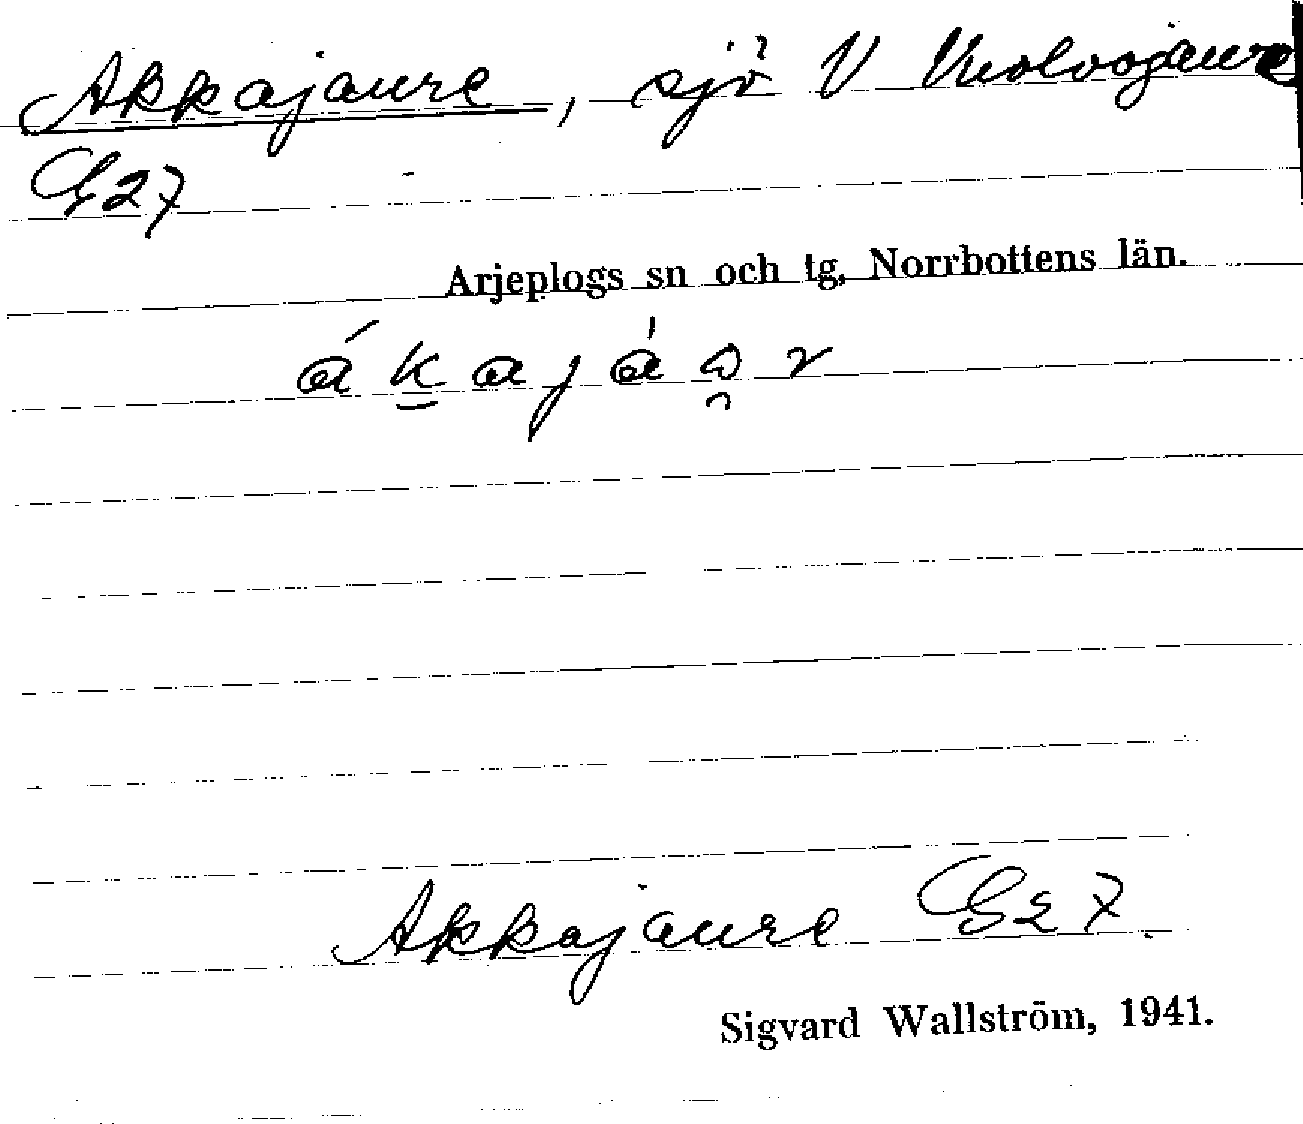 Akkajaure, sjö V
G27
Arjeplogs sn och tg, Norrbottens län.
Akkajaure G27
Sigvard Wallström, 1941.